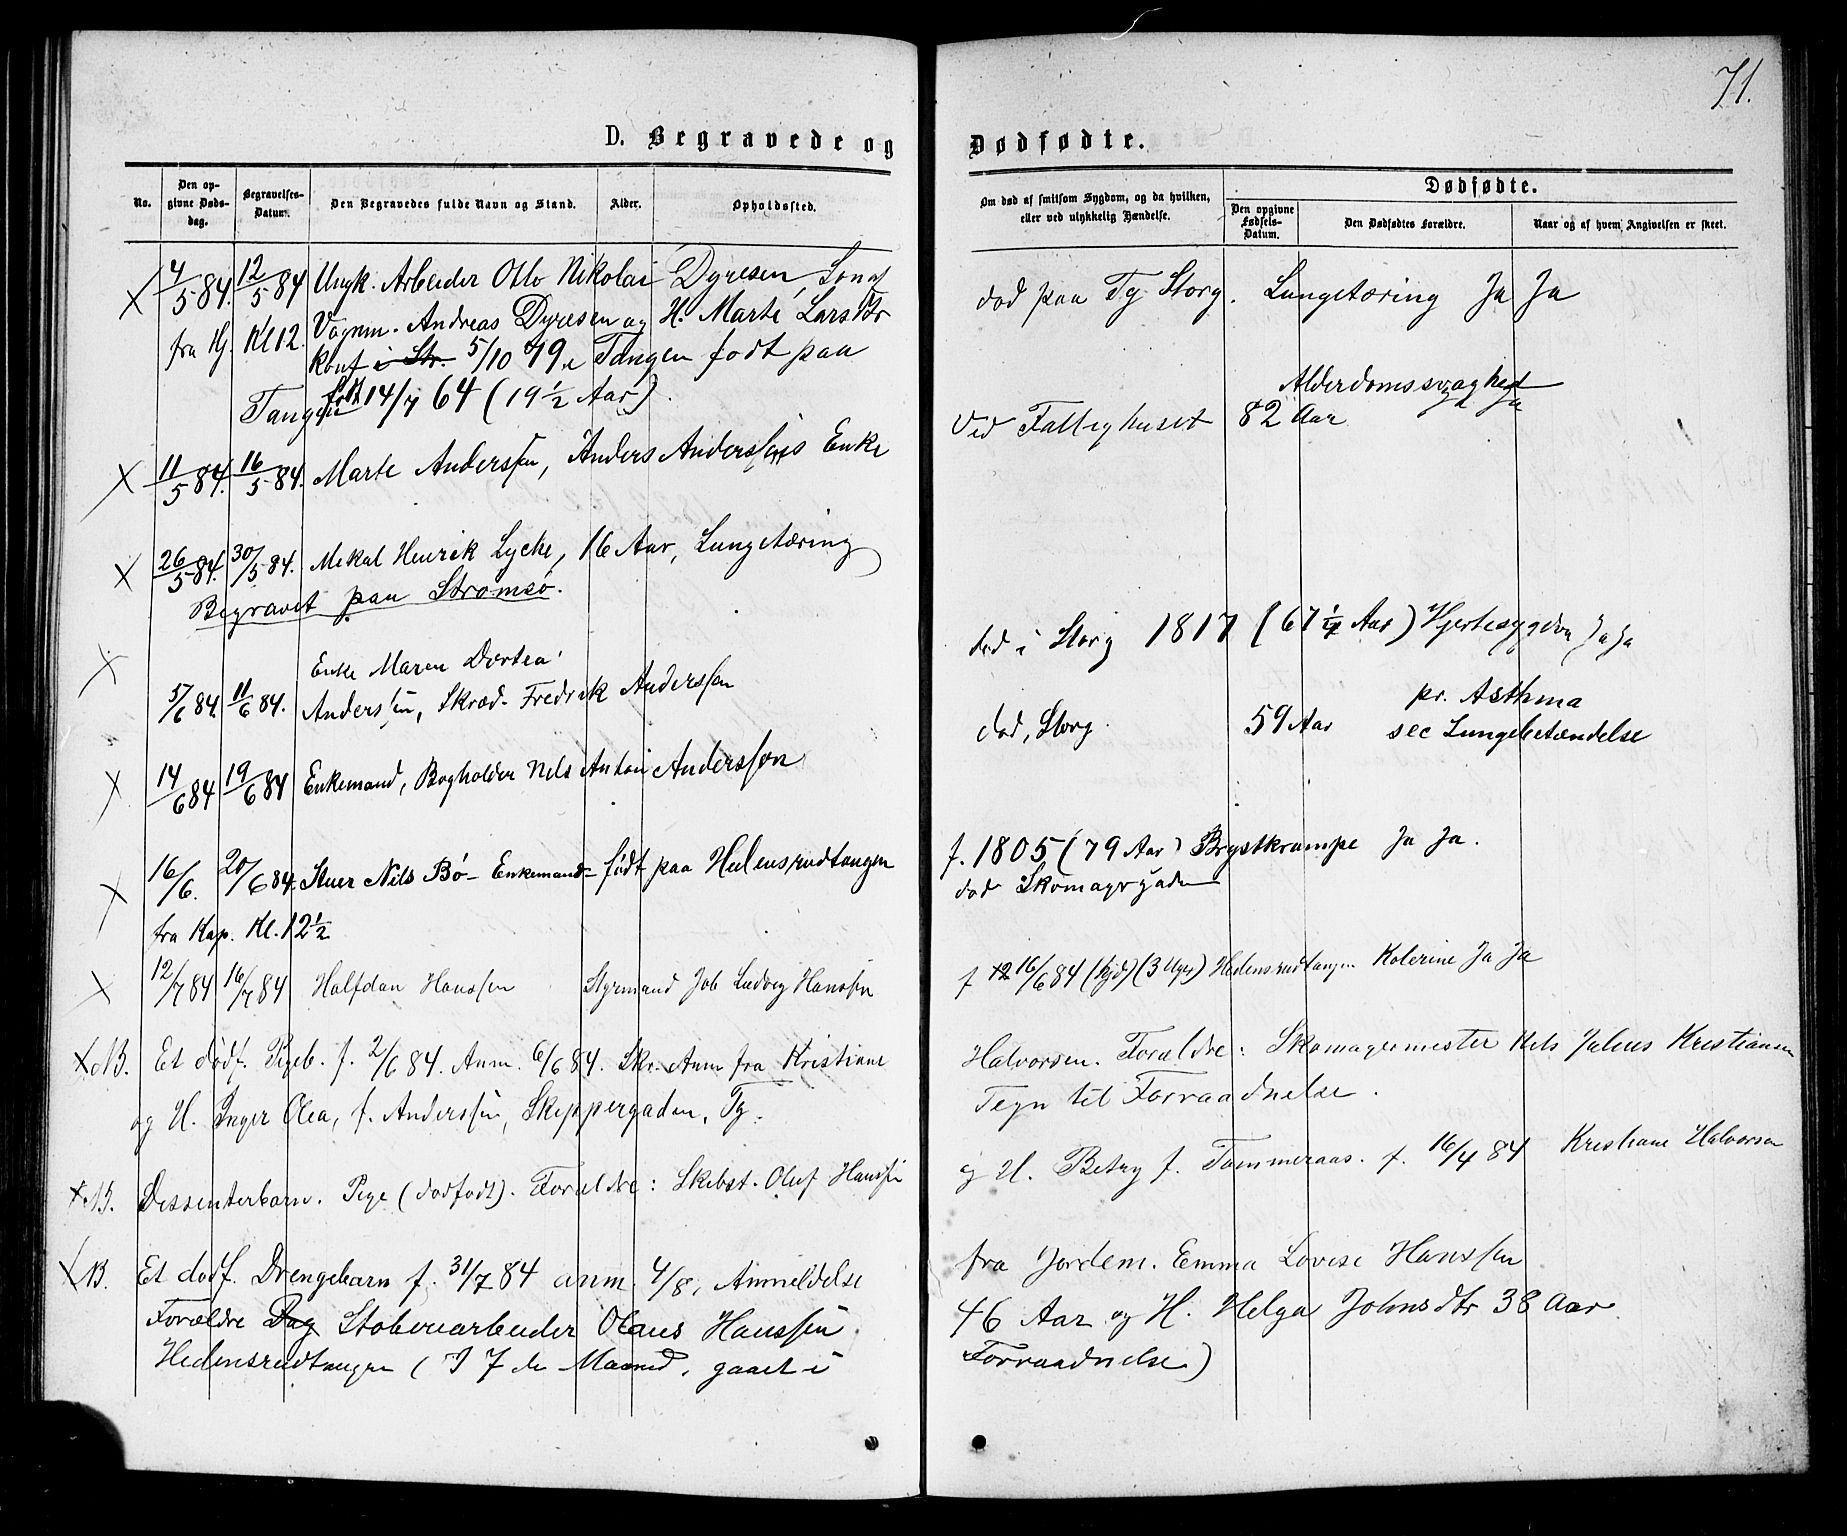 71.
D. Begravede og Dødfødte.
No.
Den opgivne Dødsdag.
Begravelses-Datum.
Den Begravedes fulde Navn og Stand.
Alder.
Opholdssted.
Om død af smitsom Sygdom, og da hvilken, eller ved ulykkelig Hændelse.
Dødfødte.
Den opgivne Fødsels-Datum.
Den Dødfødtes Forældre.
Naar og af hvem Angivelsen er skeet.
X 4/5 84. 12/5 84 Ungk. Arbeider Otto Nikolai Dyresen, Søn af
fra Hj. Kl 12. Vognm. Andreas Dyresen og H. Marte Lars Dtr
Konf i Str. 5/10 79 i Tangen født paa
Tangen født 14/7 64 (19 1/2 Aar).
død paa Tg Storg. Lungetæring Ja Ja
X 11/5 84. 16/5 84. Marte Anderssen, Anders Anderssens Enke
Alderdomssvaghed
Ved Fattighuset 82 Aar Ja
X 26/5 84. 30/5 84. Mikal Henrik Lycke, 16 Aar, Lungetæring
Begravet paa Strømsø.
X Enke Maren Dortea
5/6 84. 11/6 84. Anderssen, Skræd. Fredrik Anderssen
død i Storg 1817 (67 1/4 Aar) Hjertesygdom Ja Ja
X 14/6 84 19/6 84 Enkemand, Bogholder Nils Anton Anderssen
pr. Asthma
død, Storg. 59 Aar sec Lungebetændelse
X 16/6. 20/6 84. Stuer Nils Bø - Enkemand - født paa Hedensrudtangen
fra Kap. Kl. 12 1/2
f. 1805 (79 Aar) Brystkrampe Ja Ja.
død Skomagergaden
X 12/7 84 16/7 84 Halfdan Hanssen Styrmand Job Ludvig Hanssen
f 12 16/6 84 (hjd) (3 Uger) Hedensrudtangen Kolerine Ja Ja
X NB. Et dødf. Pigeb. f. 2/6 84. Anm. 6/6 84. Skr. Anm fra Kristiane
Halvorsen. Forældre: Skomagermester Nils Julius Kristiansen
og H. Inger Olea, f. Anderssen, Skippergaden, Tg.
Tegn til Forraadnelse.
X NB. Dissenterbarn. Pige (dødfødt). Forældre: Skibst. Oluf Hanssen
og H. Betsy f. Tommeraas. f. 16/4 84 Kristiane Halvorsen
X NB. Et dødf. Drengebarn f. 31/7 84 anm. 4/8, Anmeldelse
fra Jordem. Emma Lovise Hanssen
Forældre Dag Støberiarbeider Olaus Hanssen
46 Aar og H. Helga Johnsdtr 38 Aar
Hedensrudtangen (I 7 de Maaned, gaaet i
Forraadnelse)